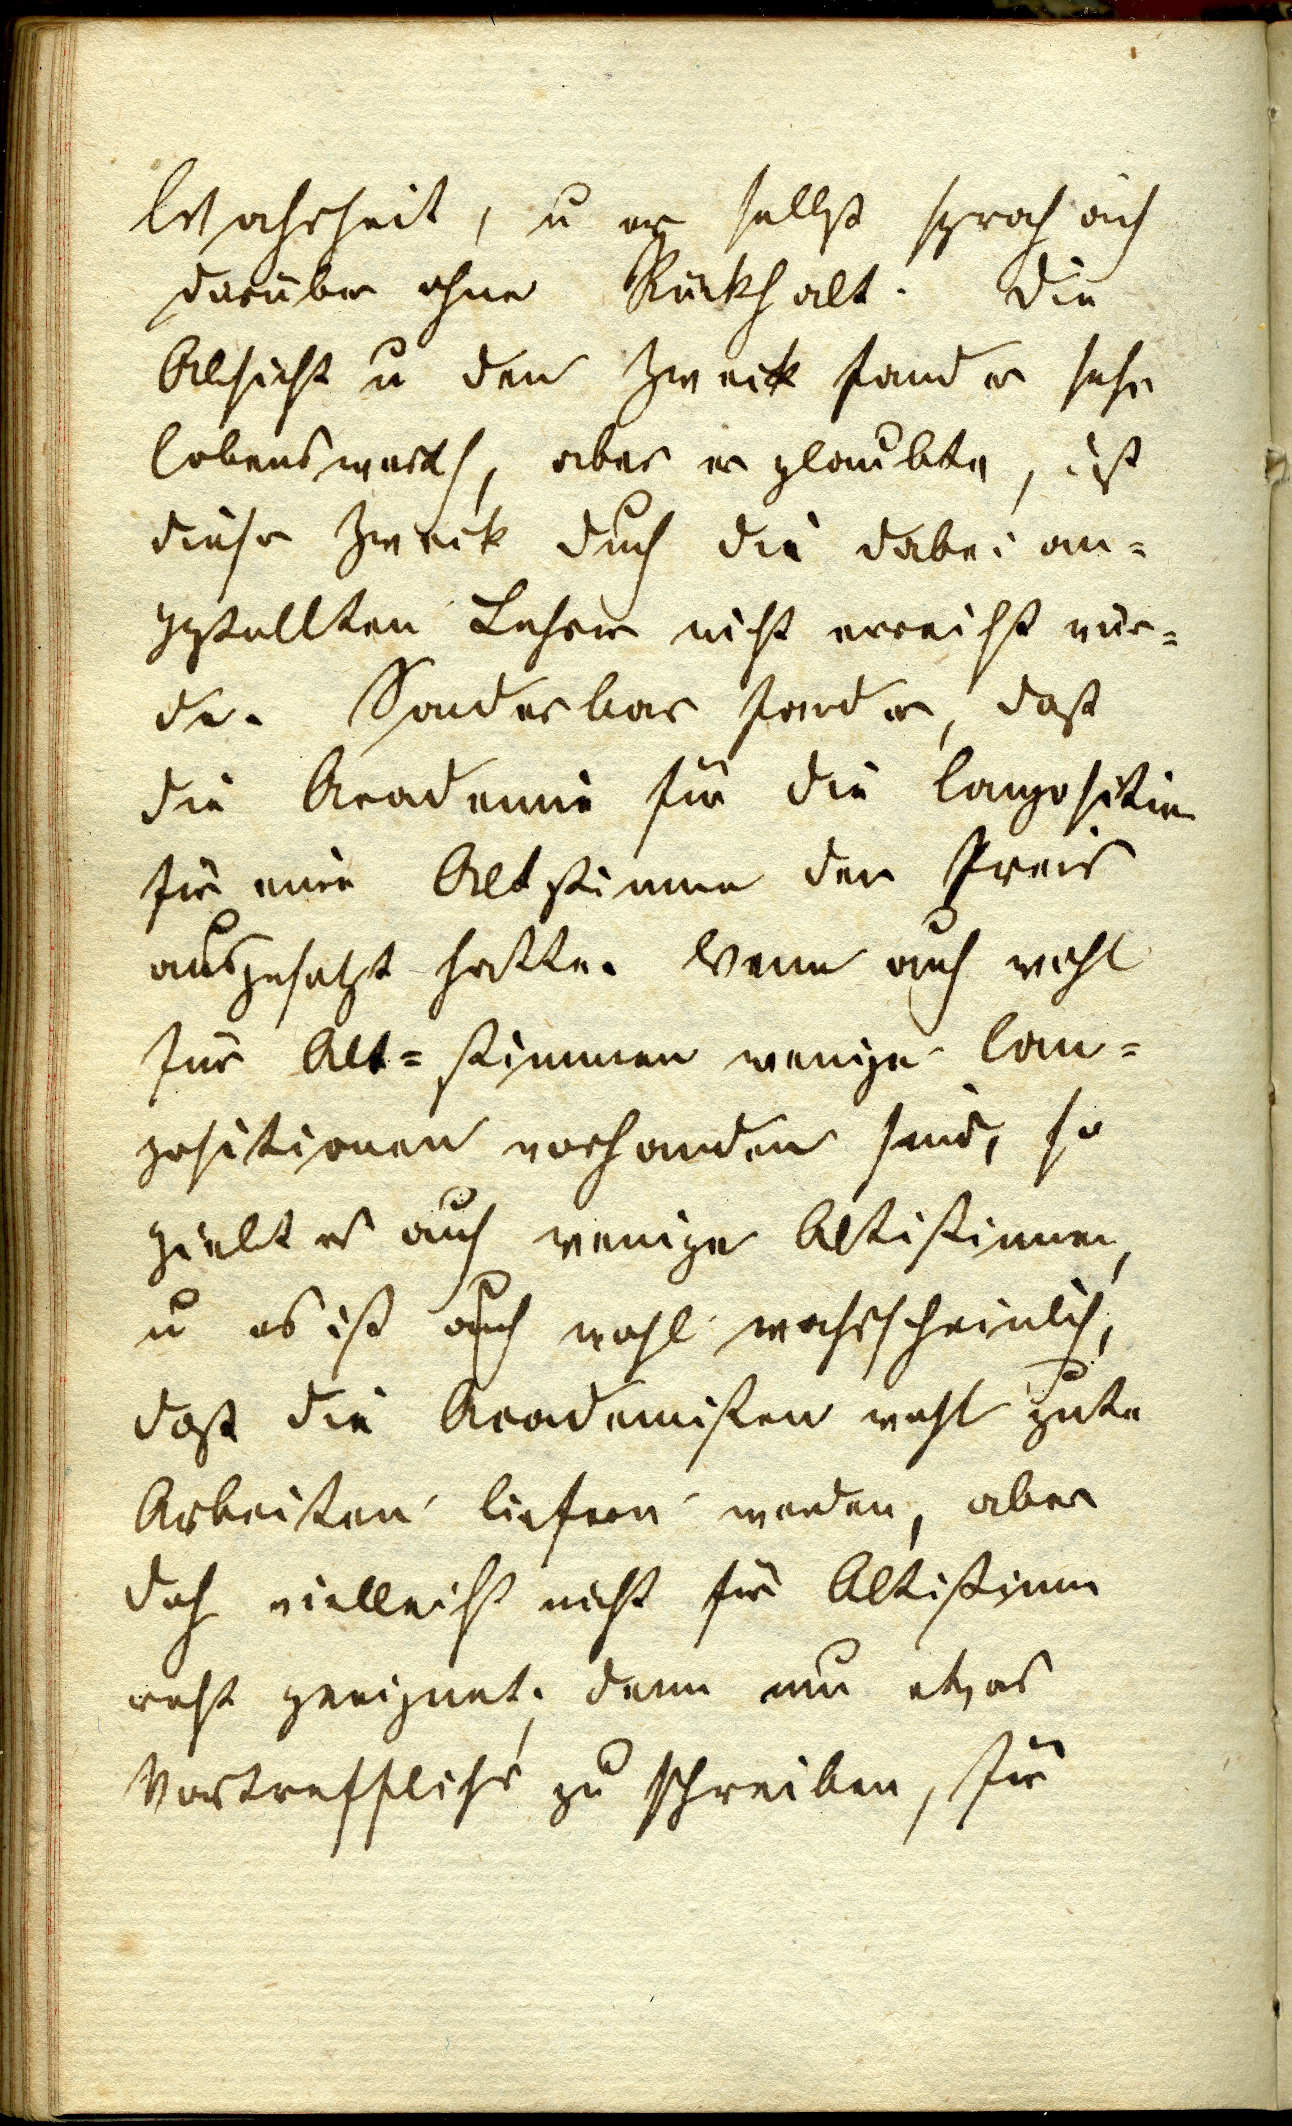 Wahrheit, u er selbst sprach auch
darüber ohne Rückhalt. Die
Absicht u den Zweck fand er sehr
lobenswerth, aber er glaubte,
dieser Zweck durch die dabei an=
gestellten Lehrer nicht erreicht wür=
de. Sonderbar fand er, daß
die Academie für die Composition
für eine Altstimme den Preis
ausgesetzt hatte. Wenn auch wohl
für Alt=stimmen wenige Com=
positionen vorhanden sind, so
giebt es auch wenige Altistinnen,
u es ist auch wohl wahrscheinlich,
daß die Academisten wohl gute
Arbeiten liefern werden, aber
doch vielleicht nicht für Altistinnen
recht geeignet, denn um etwas
Vortreffliches zu schreiben, für